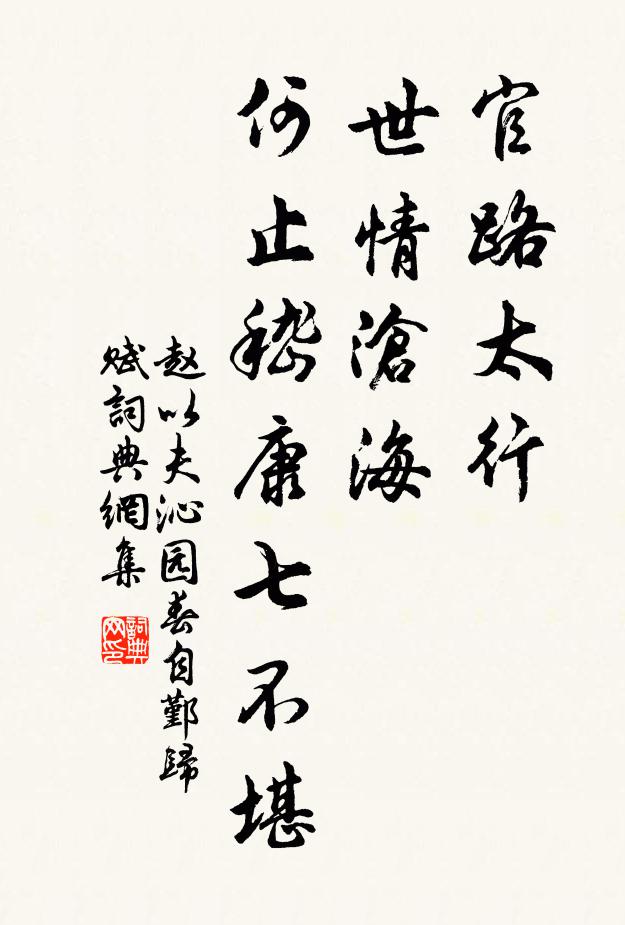 官路太行
世情滄海
何止嵇康七不堪
赵以夫沁园春自鄞歸
赋詞典網集
詞典网印